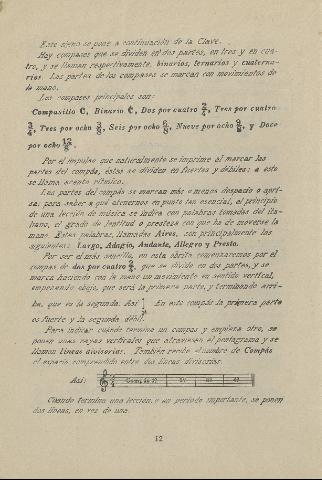 Este signo se pone a continuación de la Clave.
Hay compases que se dividen en dos partes, en tres y en cua-
tro, y se llaman respectivamente, binarios, ternarios y cuaterna-
rios. Las partes de los compases se marcan con movimientos de
la mano.
Los compases principales son:
Compasillo C, Binario ₵, Dos por cuatro 2/4, Tres por cuatro
3/4, Tres por ocho 3/8, Seis por ocho 6/8, Nueve por ocho 9/8, y Doce
por ocho 12/8.
Por el impulso que naturalmente se imprime al marcar las
partes del compás, éstas se dividen en fuertes y débiles: a esto
se llama acento rítmico.
Las partes del compás se marcan más o menos despacio o apri-
sa. para saber a qué atenernos en punto tan esencial, al principio
de una lección de música se indica con palabras tomadas del ita-
liano, el grado de lentitud o presteza con que ha de moverse la
mano. Estas palabras, llamadas Aires, son principalmente las
siguientes: Largo, Adagio, Andante, Allegro y Presto.
Por ser el más sencillo, en esta obrita comenzaremos por el
compás de dos por cuatro 2/4, que se divide en dos partes, y se
marca haciendo con la mano un movimiento en sentido vertical,
empezando abajo, que será la primera parte, y terminando arri-
ba, que es la segunda. Así En este compás la primera parte
es fuerte y la segunda débil.
Para indicar cuándo termina un compás y empieza otro, se
ponen unas rayas verticales que atraviesan el pentagrama y se
llaman líneas divisorias. También recibe el nombre de Compás
el espacio comprendido entre dos líneas divisorias.
Así:
Cuando termina una lección, o un período importante, se ponen
dos líneas, en vez de una.
12